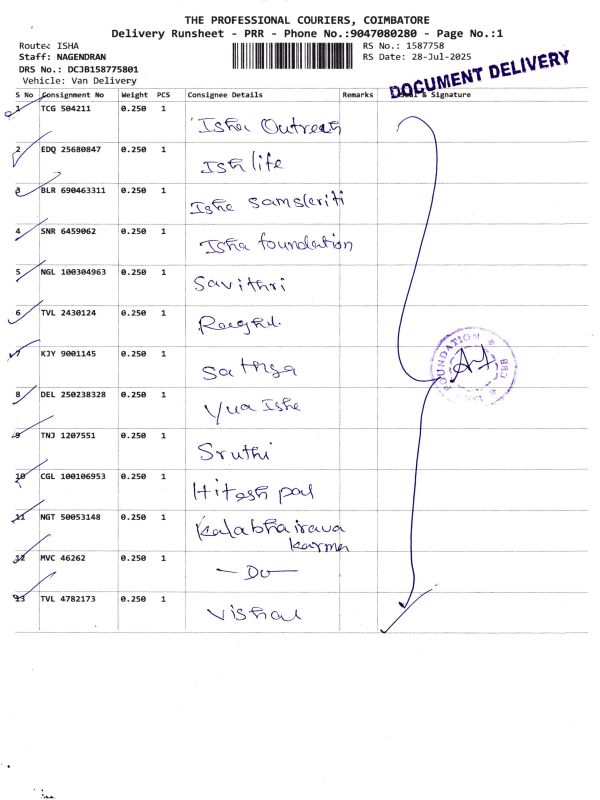 THE PROFESSIONAL COURIERS, COIMBATORE
Delivery Runsheet - PRR - Phone No.:9047080280 - Page No.:1
Route: ISHA RS No.: 1587758
Staff: NAGENDRAN RS Date: 28-Jul-2025
DRS No.: DCJB158775801
Vehicle: Van Delivery
DOCUMENT DELIVERY
S No Consignment No Weight PCS Consignee Details Remarks & Signature
1 TCG 504211 0.250 1 Isha Outreach
2 EDQ 25680847 0.250 1 Ish life
3 BLR 690463311 0.250 1 Isha Samskriti
4 SNR 6459062 0.250 1 Isha foundation
5 NGL 100304963 0.250 1 Savithri
6 TVL 2430124 0.250 1
7 KJY 9001145 0.250 1
8 DEL 250238328 0.250 1
9 TNJ 1207551 0.250 1 Sruthi
10 CGL 100106953 0.250 1 Hitesh pal
11 NGT 50053148 0.250 1 Kalabhairava
karma
12 MVC 46262 0.250 1 — Do —
13 TVL 4782173 0.250 1 Vishal
FOUNDATION